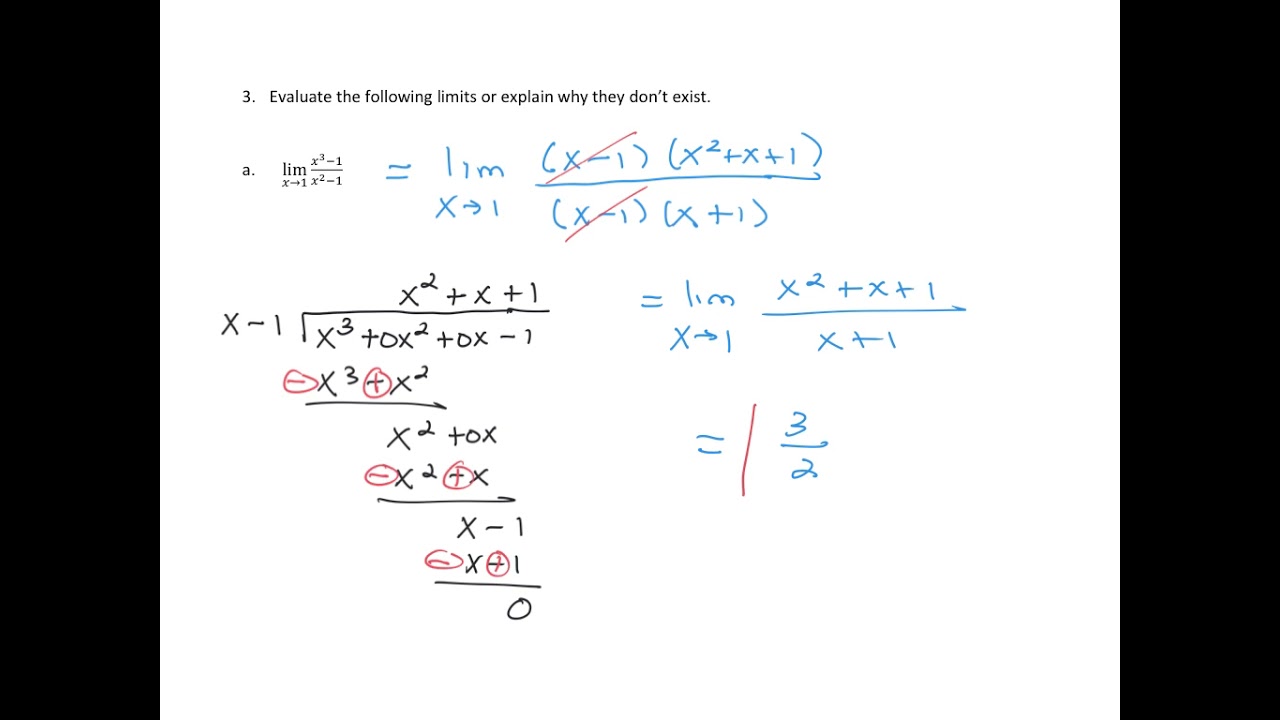 3. Evaluate the following limits or explain why they don't exist.
a. lim x→1 x³−1 / x²−1 = lim x→1 (x−1)(x²+x+1) / (x−1)(x+1)
= lim x→1 x²+x+1 / x+1
= 3/2
x²+x+1
x−1 √x³+0x²+0x−1
−x³+x²
x²+0x
−x²+x
x−1
−x+1
0